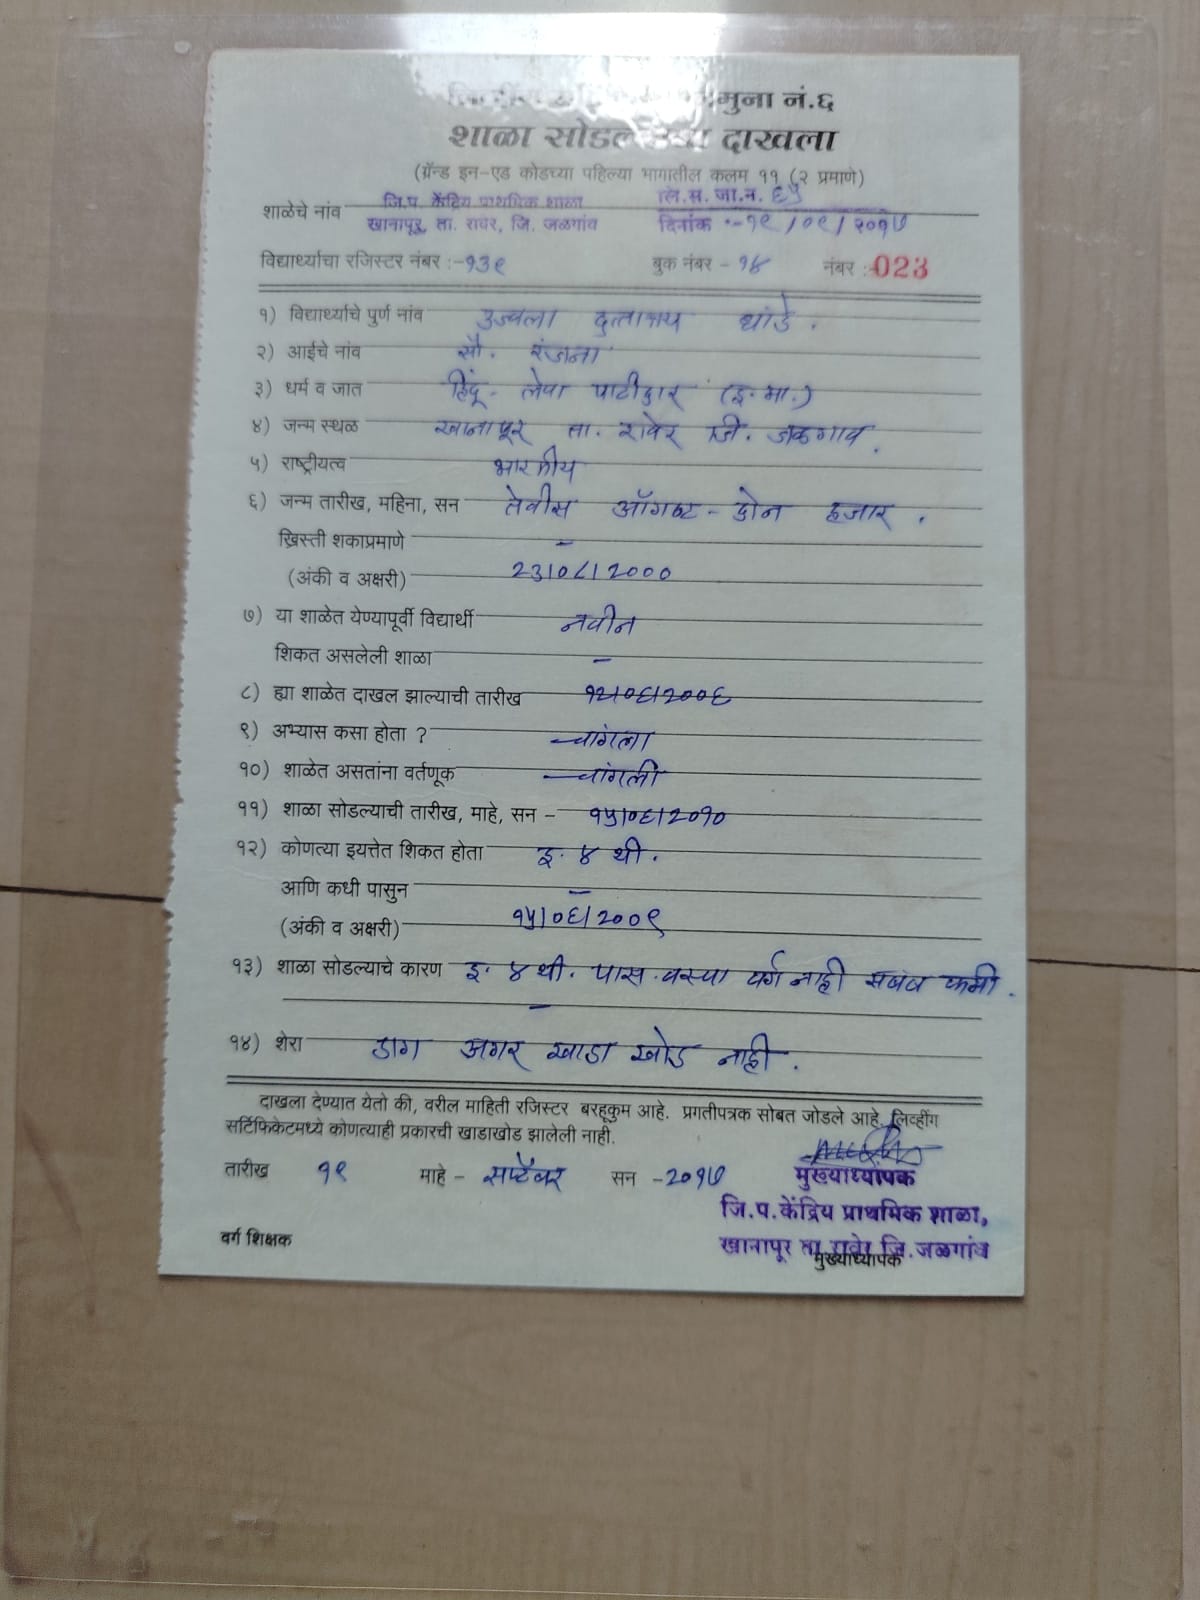 नमुना नं.६
शाळा सोडल्याचा दाखला
(ग्रॅन्ड इन-एड कोडच्या पहिल्या भागातील कलम ११ (२ प्रमाणे)
शाळेचे नांव जि.प. केंद्रिय प्राथमिक शाळा लि.स. जा.न. ६५
खानापूर, ता. रावेर, जि. जळगांव दिनांक :-१९/०९/२०१७
विद्यार्थ्याचा रजिस्टर नंबर :-१३९ बुक नंबर - १४ नंबर :-023
१) विद्यार्थ्याचे पुर्ण नांव उज्वला दत्तात्रय धांडे.
२) आईचे नांव सौ. रंजना
३) धर्म व जात हिंदू- लेवा पाटीदार (इ.मा.)
४) जन्म स्थळ खानापूर ता. रावेर जि. जळगाव.
५) राष्ट्रीयत्व भारतीय
६) जन्म तारीख, महिना, सन तेवीस ऑगष्ट - दोन हजार.
ख्रिस्ती शकाप्रमाणे -
(अंकी व अक्षरी) २३/०८/२०००
७) या शाळेत येण्यापूर्वी विद्यार्थी नवीन
शिकत असलेली शाळा -
८) ह्या शाळेत दाखल झाल्याची तारीख १२/०६/२००६
९) अभ्यास कसा होता ? चांगला
१०) शाळेत असतांना वर्तणूक चांगली
११) शाळा सोडल्याची तारीख, माहे, सन - १५/०६/२०१०
१२) कोणत्या इयत्तेत शिकत होता इ. ४ थी.
आणि कधी पासुन -
(अंकी व अक्षरी) १५/०६/२००९
१३) शाळा सोडल्याचे कारण इ. ४ थी. पास. वरचा वर्ग नाही सबब कमी.
-
१४) शेरा डाग अगर खाडा खोड नाही.
दाखला देण्यात येतो की, वरील माहिती रजिस्टर बरहूकुम आहे. प्रगतीपत्रक सोबत जोडले आहे. लिव्हींग
सर्टिफिकेटमध्ये कोणत्याही प्रकारची खाडाखोड झालेली नाही.
तारीख १९ माहे - सप्टेंबर सन - २०१७ मुख्याध्यापक
जि.प.केंद्रिय प्राथमिक शाळा,
खानापूर ता. रावेर जि. जळगांव
वर्ग शिक्षक मुख्याध्यापक